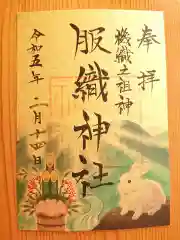 奉拝
機織之祖神
服織神社
令和五年二月十四日